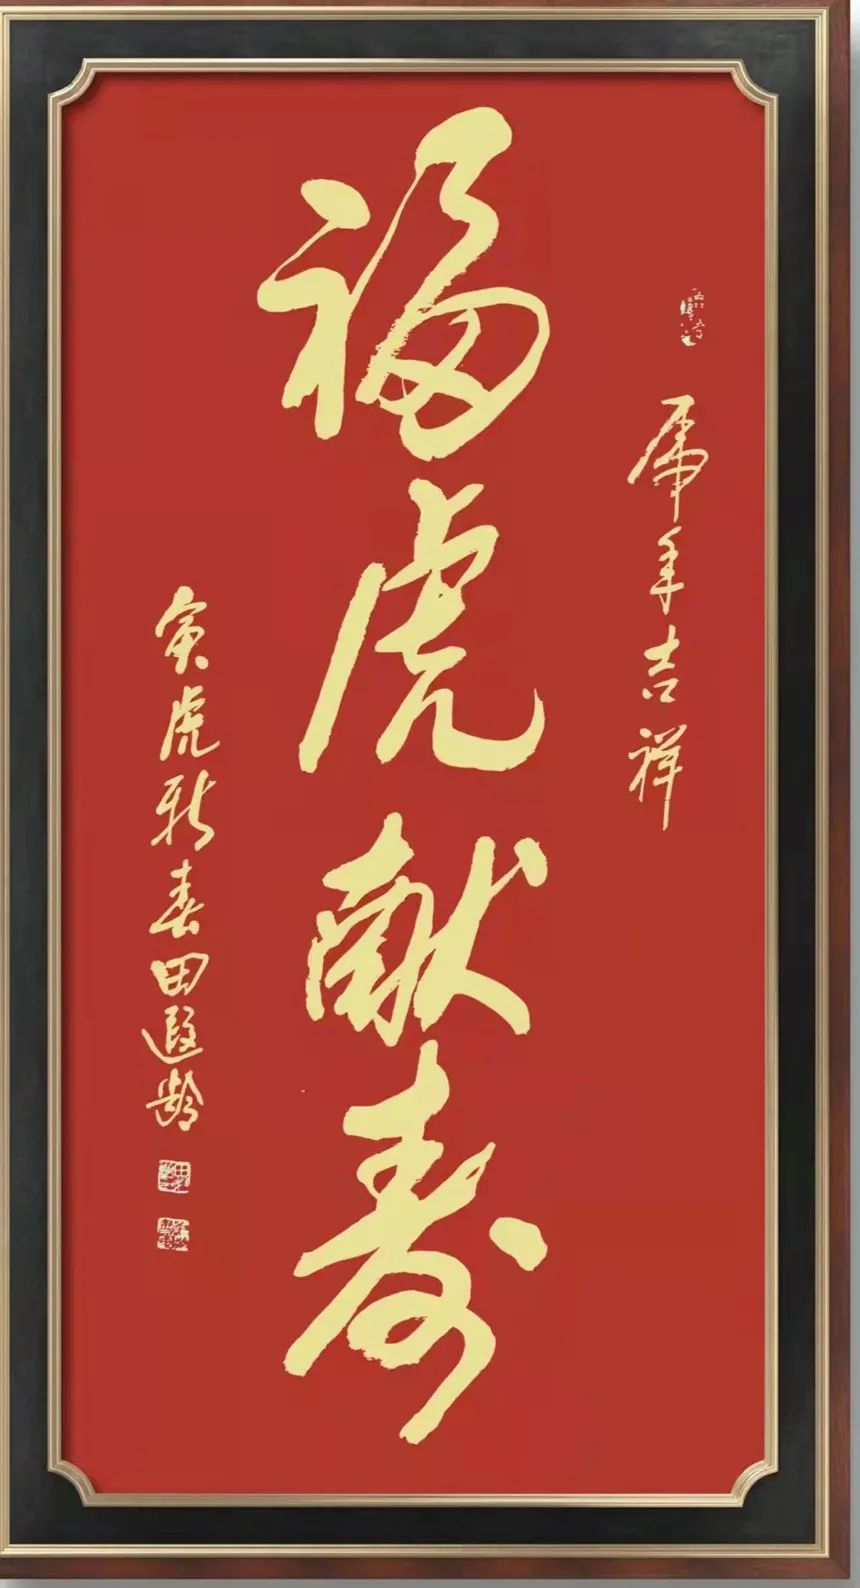 虎年吉祥
福虎献寿
寅虎新春田遐龄